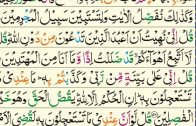 وَكَذَٰلِكَ نُفَصِّلُ الْآيَٰتِ وَلِتَسْتَبِينَ سَبِيلُ الْمُجْرِمِينَ
قُلْ إِنِّي نُهِيتُ أَنْ أَعْبُدَ الَّذِينَ تَدْعُونَ مِن دُونِ اللَّهِ قُل
لَّا أَتَّبِعُ أَهْوَاءَكُمْ قَدْ ضَلَلْتُ إِذًا وَمَا أَنَا مِنَ الْمُهْتَدِينَ
قُلْ إِنِّي عَلَىٰ بَيِّنَةٍ مِّن رَّبِّي وَكَذَّبْتُم بِهِ مَا عِندِي مَا
تَسْتَعْجِلُونَ بِهِ إِنِ الْحُكْمُ إِلَّا لِلَّهِ يَقُصُّ الْحَقَّ وَهُوَ خَيْرُ
الْفَٰصِلِينَ قُل لَّوْ أَنَّ عِندِي مَا تَسْتَعْجِلُونَ بِهِ